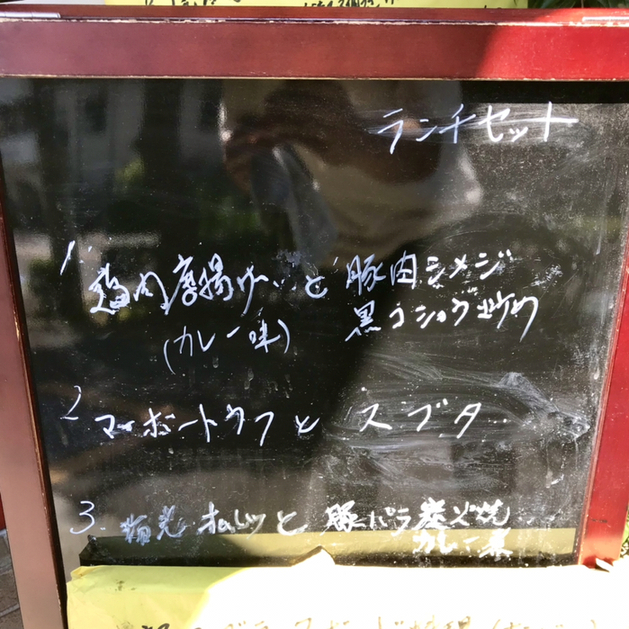 ランチセット
1. 鶏肉唐揚げと豚肉シメジ
(カレー味) 黒コショウ炒め
2 マーボートウフと スブタ
3. オムレツと 豚バラ炭火焼
カレー